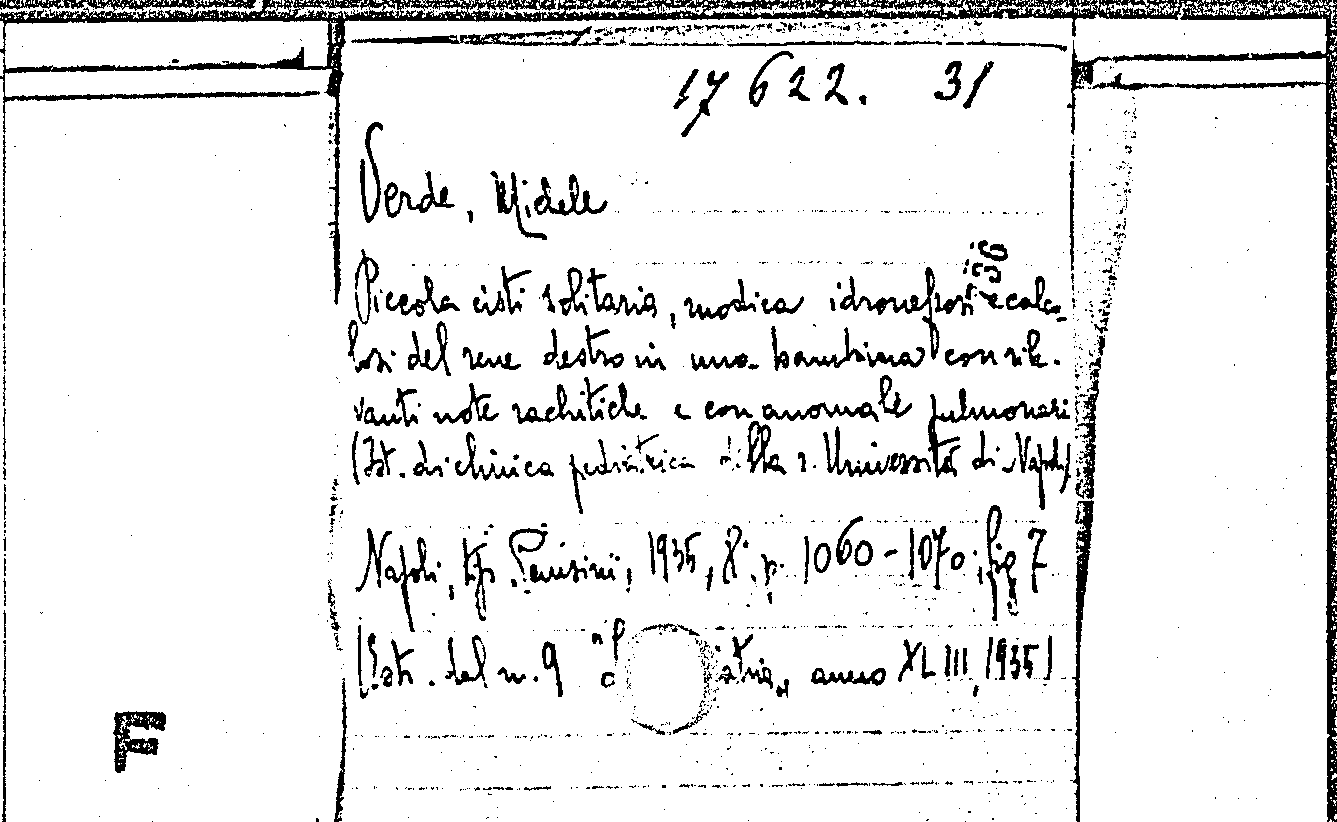 17 622. 31
Verde, Michele
Piccola cisti solitaria, modica idronefrosi e calco-
losi del rene destro in una bambina con rile-
vanti note rachitiche e con anomalie pulmonari
(Ist. di clinica pediatrica della r. Università di Napoli)
Napoli, tip. 1935, 8°, p. 1060-1070, fig 7
(Estr. del n. 9 anno XLIII, 1935)
F